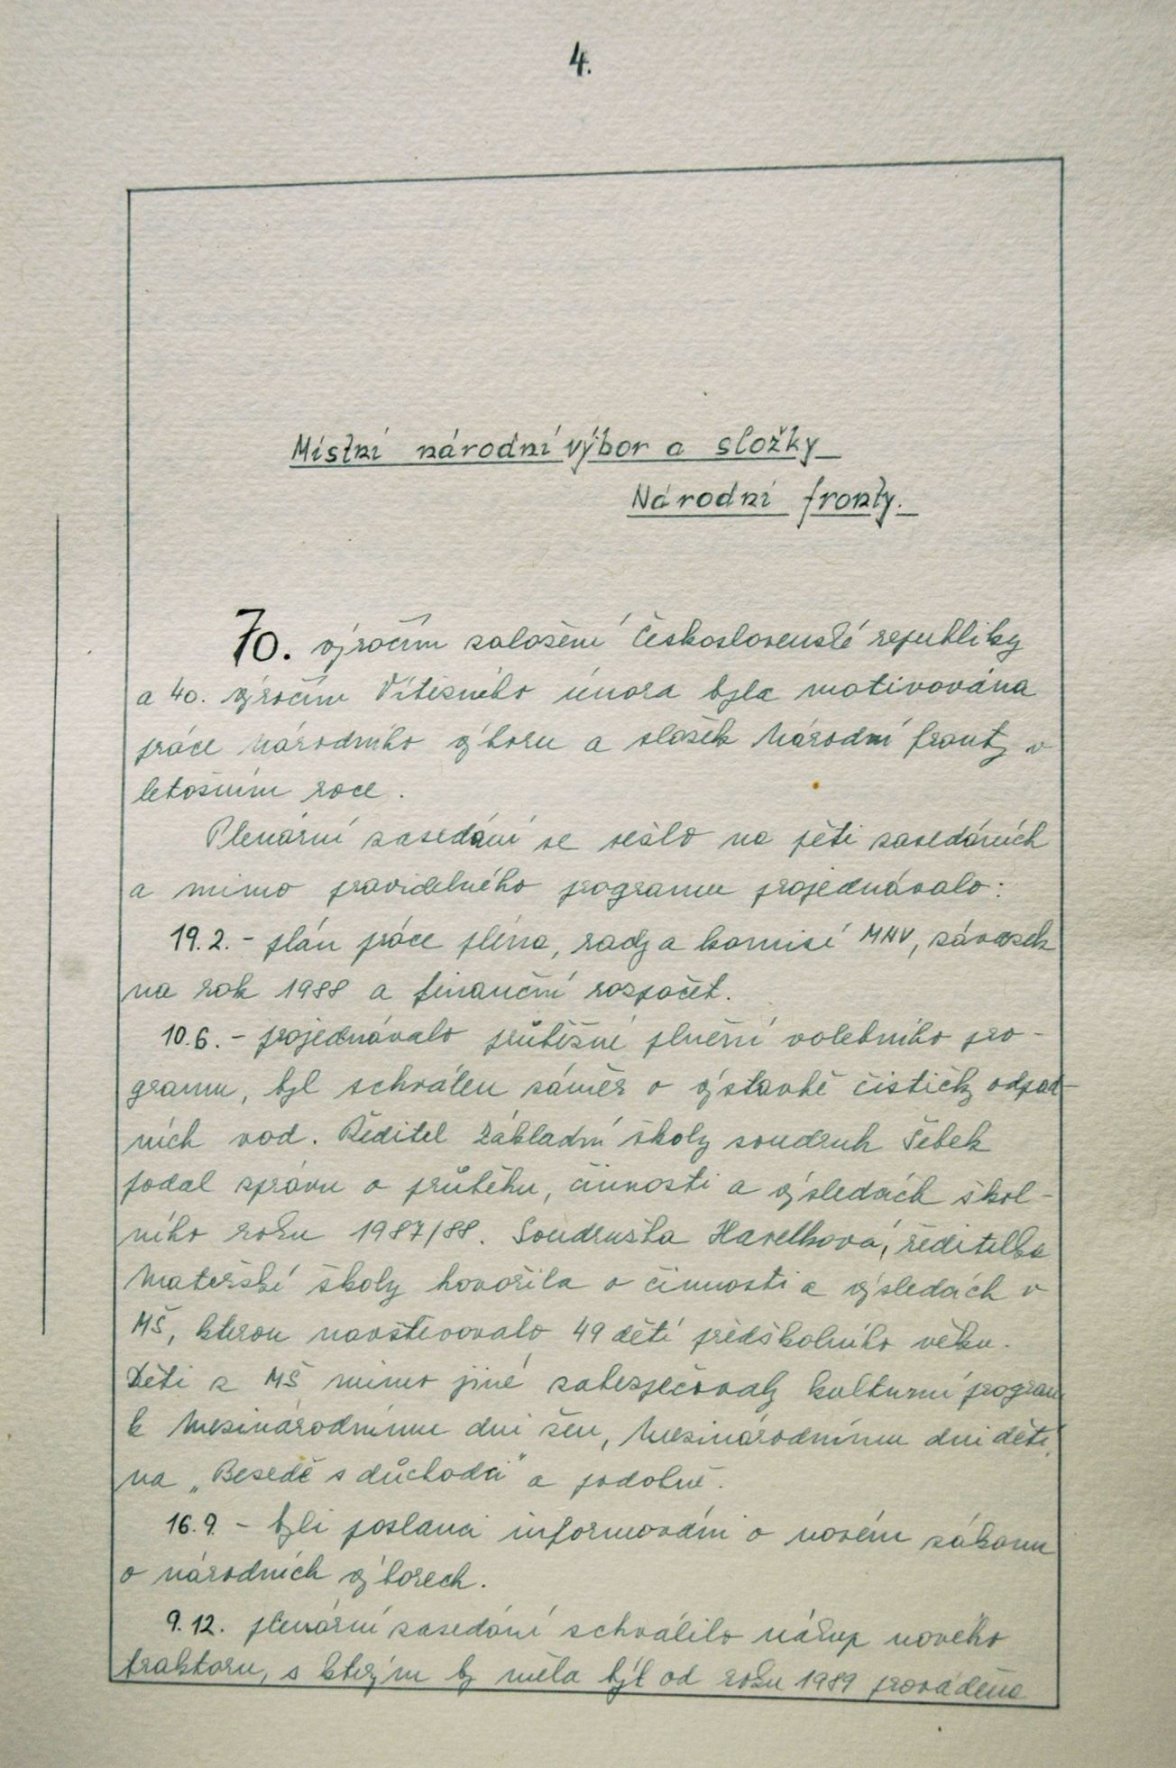 4.
Místní národní výbor a složky
Národní fronty.
70. výročím založení Československé republiky
a 40. výročím Vítězného února byla motivována
práce národního výboru a složek Národní fronty v
letošním roce.
Plenární zasedání se sešlo na pěti zasedáních
a mimo pravidelného programu projednávalo:
19.2. - plán práce pléna, rady a komisí MNV, závazek
na rok 1988 a finanční rozpočet.
10.6. - projednávalo průběžné plnění volebního pro-
gramu, byl schválen záměr o výstavbě čističky odpad-
ních vod. Ředitel Základní školy soudruh Šebek
podal zprávu o průběhu, činnosti a výsledcích škol-
ního roku 1987/88. Soudružka Havelková, ředitelka
Mateřské školy hovořila o činnosti a výsledcích v
MŠ, kterou navštěvovalo 49 dětí předškolního věku.
Děti z MŠ mimo jiné zabezpečovaly kulturní program
k Mezinárodnímu dni žen, Mezinárodnímu dni dětí,
na „Besedě s důchodci" a podobně.
16.9. - byli poslanci informováni o novém zákonu
o národních výborech.
9.12. plenární zasedání schválilo nákup nového
traktoru, s kterým by měla být od roku 1989 prováděna